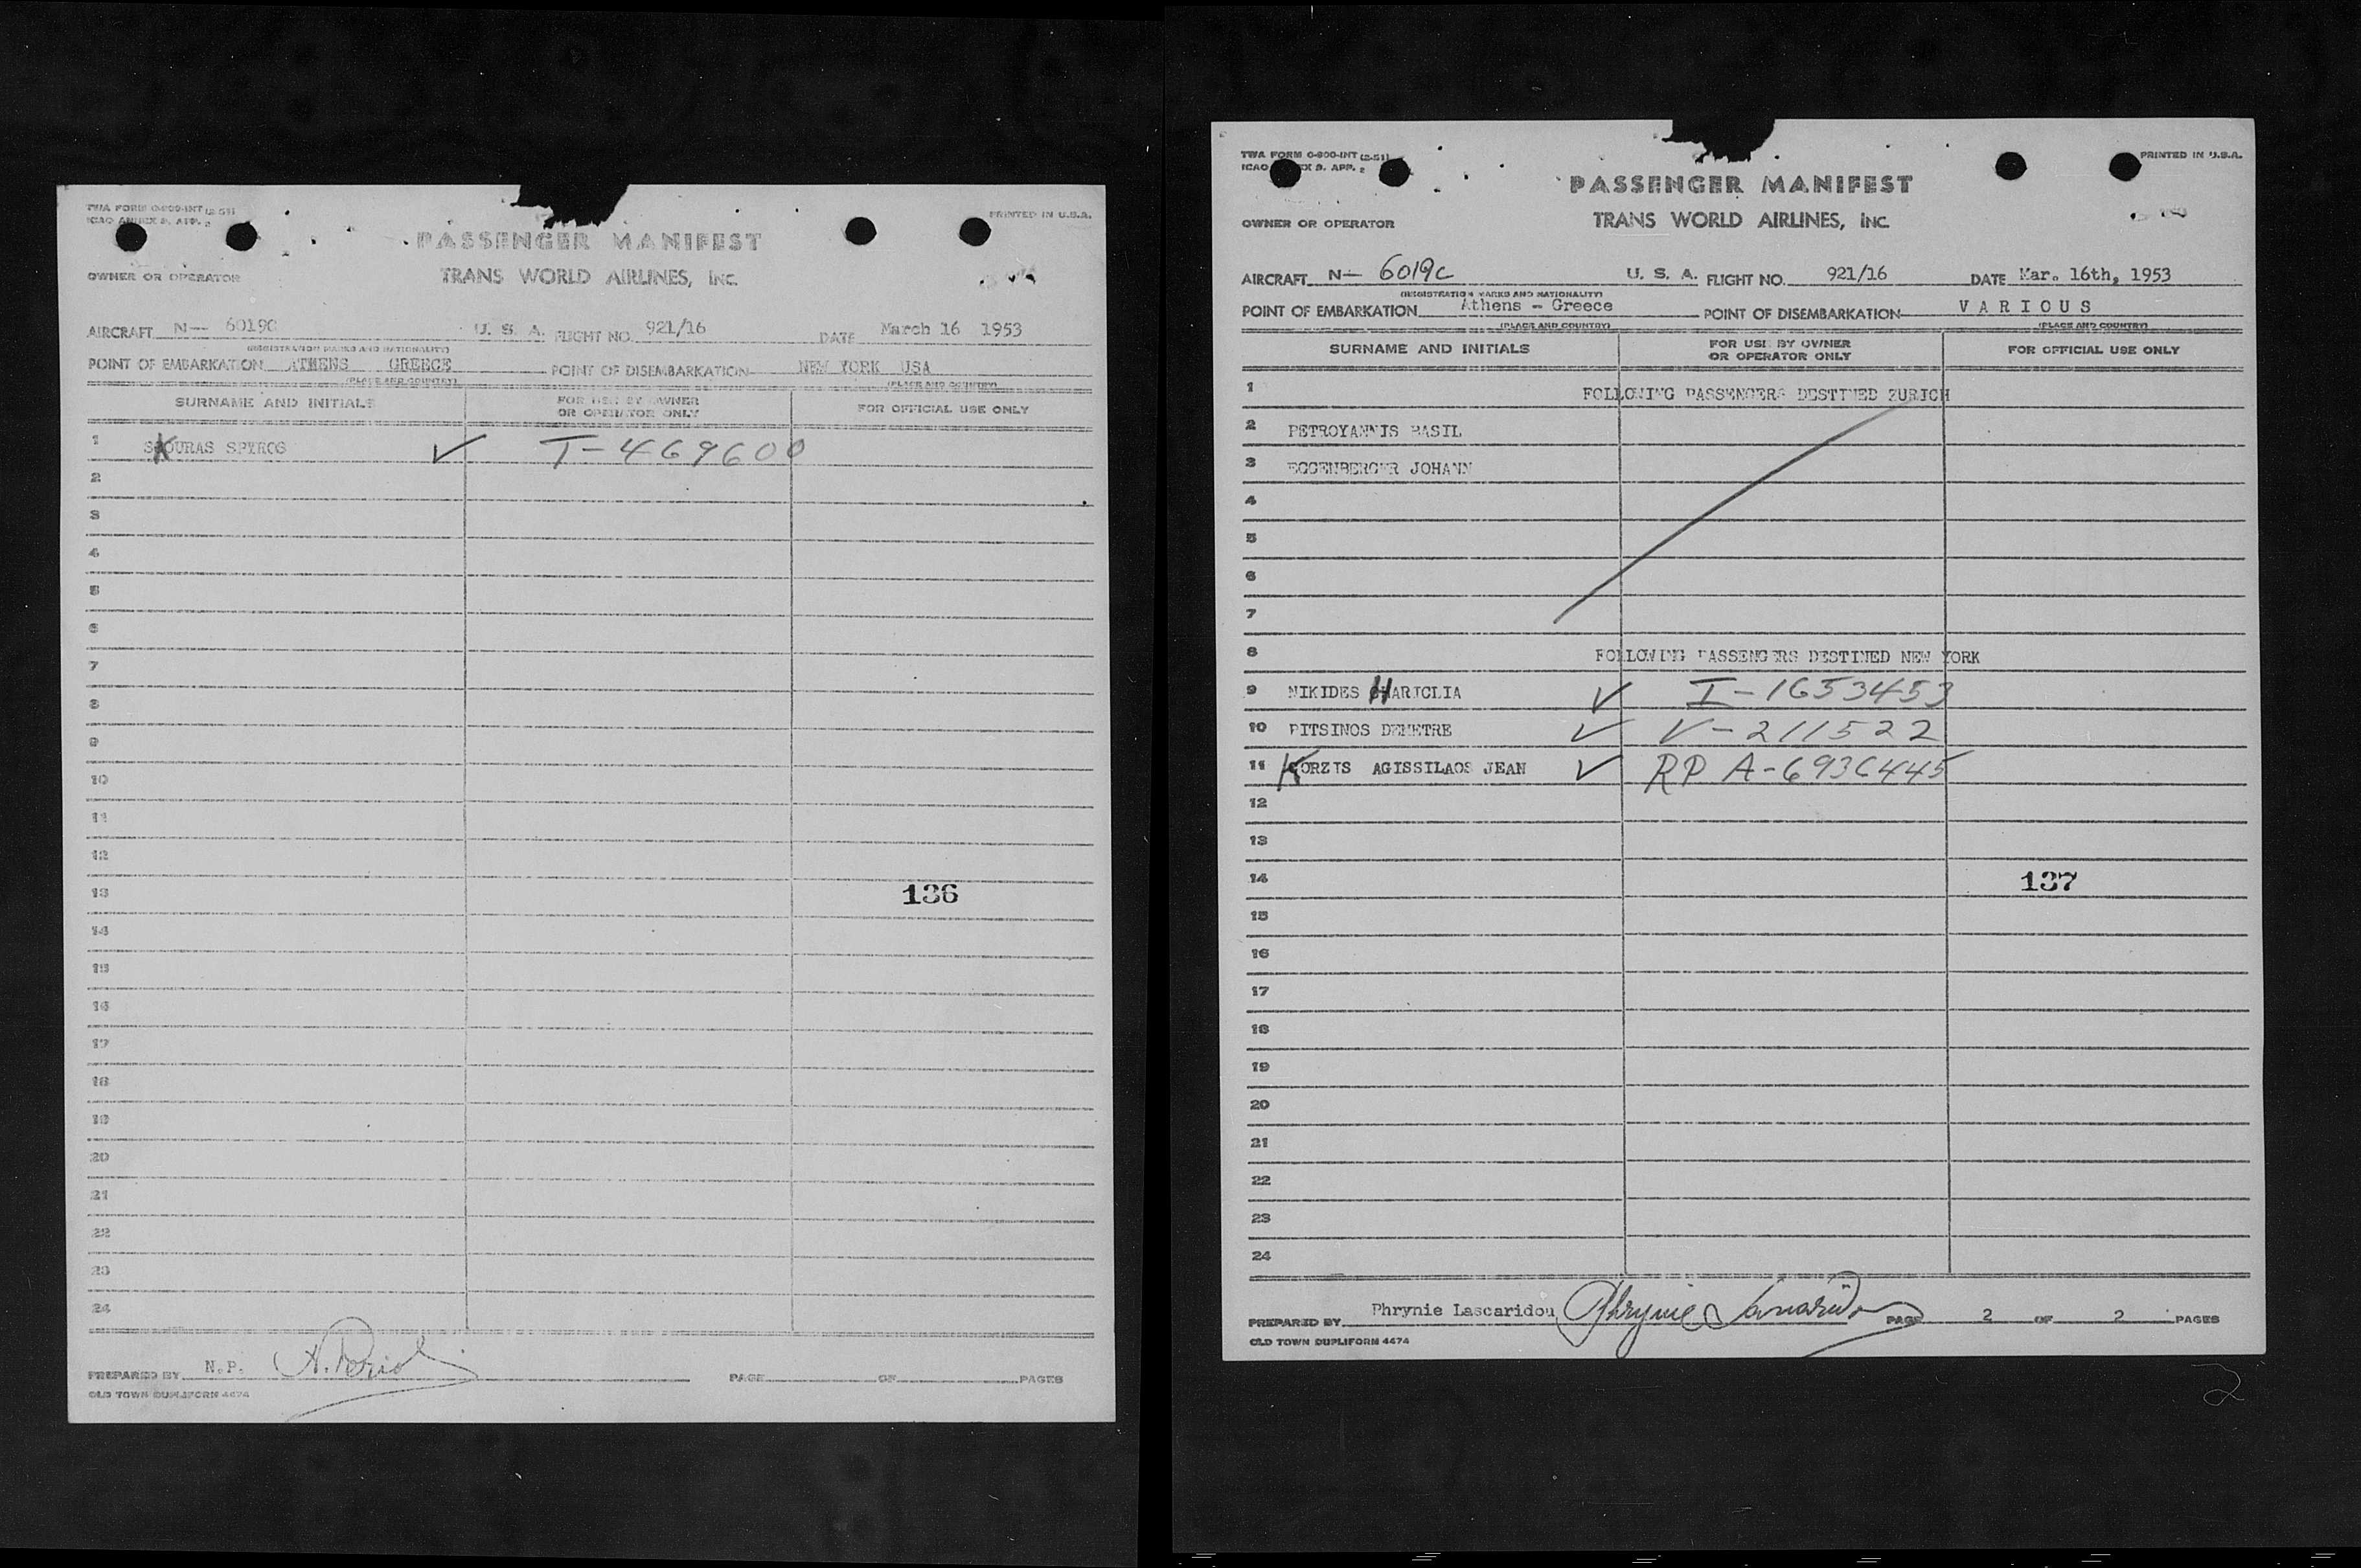 TWA FORM O-800-INT (2-51)
ICAO ANNEX 9. APP. 2
PRINTED IN U.S.A.
PASSENGER MANIFEST
OWNER OR OPERATOR TRANS WORLD AIRLINES, INC.
AIRCRAFT N— 6019C U. S. A. FLIGHT NO. 921/16 DATE March 16 1953
(REGISTRATION MARKS AND NATIONALITY)
POINT OF EMBARKATION ATHENS GREECE POINT OF DISEMBARKATION NEW YORK USA
(PLACE AND COUNTRY) (PLACE AND COUNTRY)
SURNAME AND INITIALS FOR USE BY OWNER OR OPERATOR ONLY FOR OFFICIAL USE ONLY
1 SKOURAS SPYROS ✓ T-469600
2
3
4
5
6
7
8
9
10
11
12
13 136
14
15
16
17
18
19
20
21
22
23
24
PREPARED BY N.P. PAGE OF PAGES
OLD TOWN DUPLIFORM 4474
TWA FORM O-800-INT (2-51)
ICAO EX 9. APP. 2
PRINTED IN U.S.A.
PASSENGER MANIFEST
OWNER OR OPERATOR TRANS WORLD AIRLINES, INC.
AIRCRAFT N— 6019C U. S. A. FLIGHT NO. 921/16 DATE Mar. 16th, 1953
(REGISTRATION MARKS AND NATIONALITY)
POINT OF EMBARKATION Athens - Greece POINT OF DISEMBARKATION VARIOUS
(PLACE AND COUNTRY) (PLACE AND COUNTRY)
SURNAME AND INITIALS FOR USE BY OWNER OR OPERATOR ONLY FOR OFFICIAL USE ONLY
1 FOLLOWING PASSENGERS DESTINED ZURICH
2 PETROYANNIS BASIL
3 EGGENBERGER JOHANN
4
5
6
7
8 FOLLOWING PASSENGERS DESTINED NEW YORK
9 NIKIDES HARICLIA ✓ I-1653453
10 PITSINOS DEMETRE ✓ V-211522
11 KORZIS AGISSILAOS JEAN ✓ RP A-6936445
12
13
14 137
15
16
17
18
19
20
21
22
23
24
PREPARED BY Phrynie Lascaridou Phrynie Lascaridou PAGE 2 OF 2 PAGES
OLD TOWN DUPLIFORM 4474
2